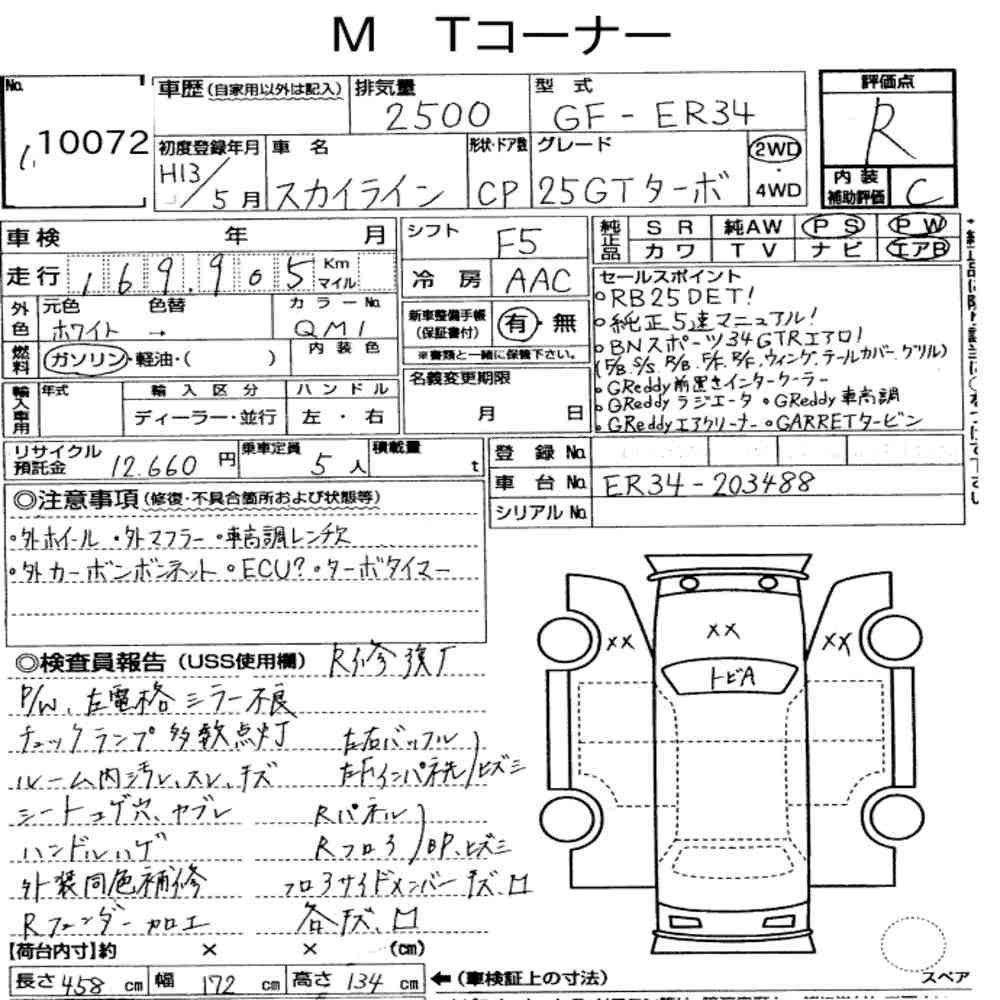 M Tコーナー
No.
10072
車歴 (自家用以外は記入)
排気量
2500
型式
GF-ER34
評価点
R
初度登録年月
H13/5月
車名
スカイライン
形状・ドア数
CP
グレード
25GTターボ
2WD
・
4WD
内装
補助評価
C
車検 年 月
走行 169,905 Km マイル
シフト
F5
冷房 AAC
純正品
SR 純AW PS PW
カワ TV ナビ エアB
外色
元色 色替
ホワイト →
カラーNo.
QM1
燃料
ガソリン・軽油・( )
内装色
新車整備手帳
(保証書付)
有・無
※書類と一緒に保管下さい。
セールスポイント
○RB25DET!
○純正5速マニュアル!
○BNスポーツ34GTRエアロ!
(F/B, S/S, R/B, F/F, R/F, ウィング、テールカバー、グリル)
○GReddy前置きインタークーラー
○GReddyラジエータ ○GReddy車高調
○GReddyエアクリーナー ○GARRETタービン
輸入車用
年式
輸入区分
ディーラー・並行
ハンドル
左・右
名義変更期限
月 日
リサイクル
預託金
12,660円
乗車定員
5人
積載量
t
登録No.
車台No. ER34-203488
シリアルNo.
◎注意事項 (修復・不具合箇所および状態等)
・外ホイール ・外マフラー ・車高調レンチ欠
・外カーボンボンネット ○ECU? ・ターボタイマー
◎検査員報告 (USS使用欄) R修復有
P/W、左電格ミラー不良
チェックランプ多数点灯
左右バッフル
ルーム内汚レ、スレ、キズ
左右Fインパネ先/ヒズミ
シートコゲ穴、ヤブレ
Rパネル
ハンドルハゲ
Rフロア/BP、ヒズミ
外装同色補修
フロアサイドメンバーキズ、凹
Rフェンダー加工
各キズ、凹
××
××
××
トビA
【荷台内寸】約 × × (cm)
長さ458cm 幅172cm 高さ134cm
←(車検証上の寸法)
スペア